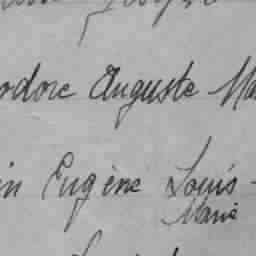 odore Auguste Ma
in Eugène Louis -
Marie